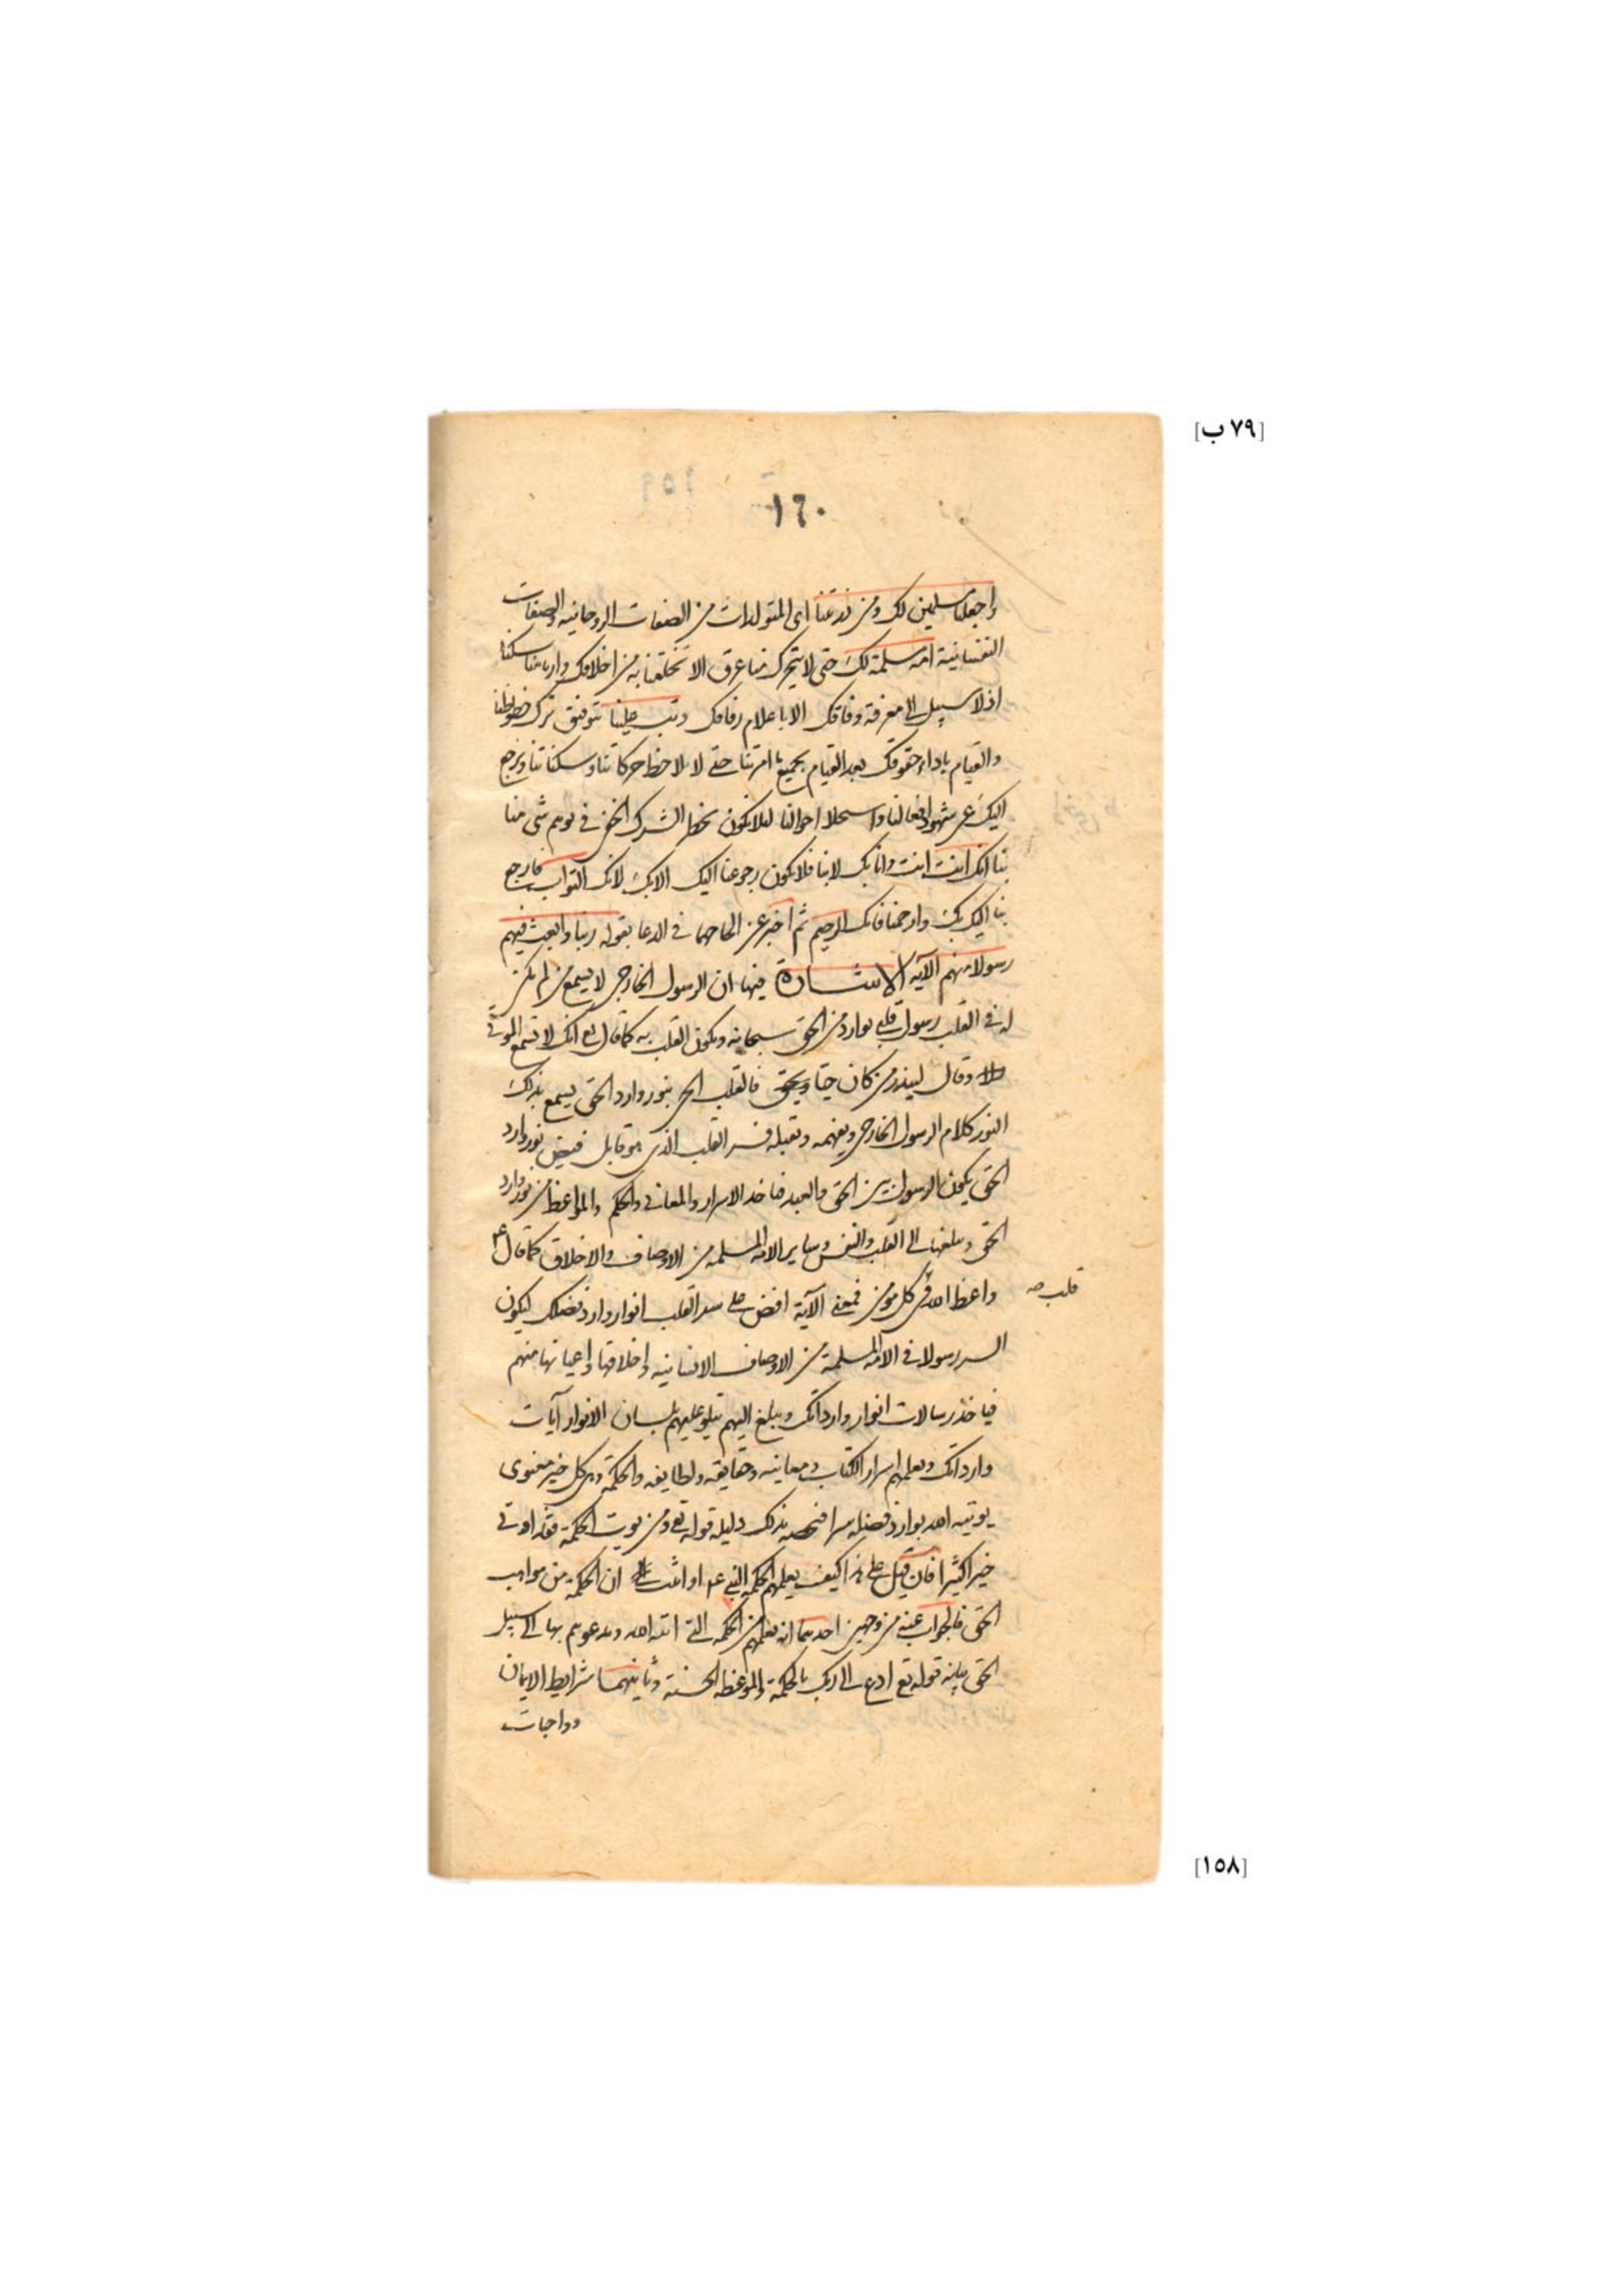 [٧٩ ب]
١٦٠
واجعلنا مسلمين لك ومن ذريتنا اى المتولدات من الصفات الروحانيه والصفات
النفسانية امة مسلمة لك حتى لا يتحرك منا عرق الا تخلقنا به من اخلاقك وارنا مناسكنا
اذ لا سبيل الى معرفة وفاقك الا باعلام رفاقك وتب علينا بتوفيق ترك حظوظنا
والقيام باداء حقوقك بعد القيام بجميع ما امرتنا حتى لا نلاحظ حركاتنا وسكناتنا ونرجع
اليك عن شهود افعالنا واستحلا احوالنا لئلا نكون بخطر الشرك الخفى فى توهم شى منا
بنا انك انت انت وانا بك لا بنا فلا يكون رجوعنا اليك الا بك لانك التواب فارجع
بنا اليك بك وارحمنا فانك الرحيم ثم اخبر عن الحاحهما فى الدعا بقوله ربنا وابعث فيهم
رسولا منهم الآية الاشارة فيها ان الرسول الخارجى لا يسمع من لم يكن
له فى القلب رسول قلبى بوارد من الحق سبحانه ويكون القلب به كما قال تع انك لا تسمع الموتى
وقال لينذر من كان حيا ويحق فالقلب الحى بنور وارد الحق يسمع بذلك
النور كلام الرسول الخارجى ويفهمه ويقبله فسر القلب الذى هو قابل فيض نور وارد
الحق يكون الرسول بين الحق والعبد فياخذ الاسرار والمعانى والحكم والمواعظ من نور وارد
الحق ويبلغها الى القلب والنفس وساير الامة المسلمه من الاوصاف والاخلاق كما قال عم
واعظ الله فى كل مؤمن فمعنى الآية افض على سر القلب انوار وارد فضلك ليكون
قلب صح
السر رسولا فى الامة المسلمة من الاوصاف الانسانيه واخلاقها واعيانها منهم
فياخذ رسالات انوار وارداتك ويبلغ اليهم يتلو عليهم بلسان الانوار آيات
وارداتك ويعلمهم اسرار الكتاب ومعانيه وحقايقه ولطايفه والحكمة وهى كل خير معنوى
يوتيه الله بوارد فضله سرا فيخصه بذلك دليله قوله تع ومن يوت الحكمة فقد اوتى
خيرا كثيرا فان قيل على هذا كيف يعلمهم الحكمة النبى عم اذا ثبت ان الحكمة من مواهب
الحق فالجواب عنه من وجهين احدهما انه يعلمهم من الحكمه التى اتيه الله ويدعوهم بها الى سبيل
الحق بيانه قوله تع ادع الى ربك بالحكمة والموعظه الحسنة وثانيهما شرايط الايمان
وواجبات
[١٥٨]